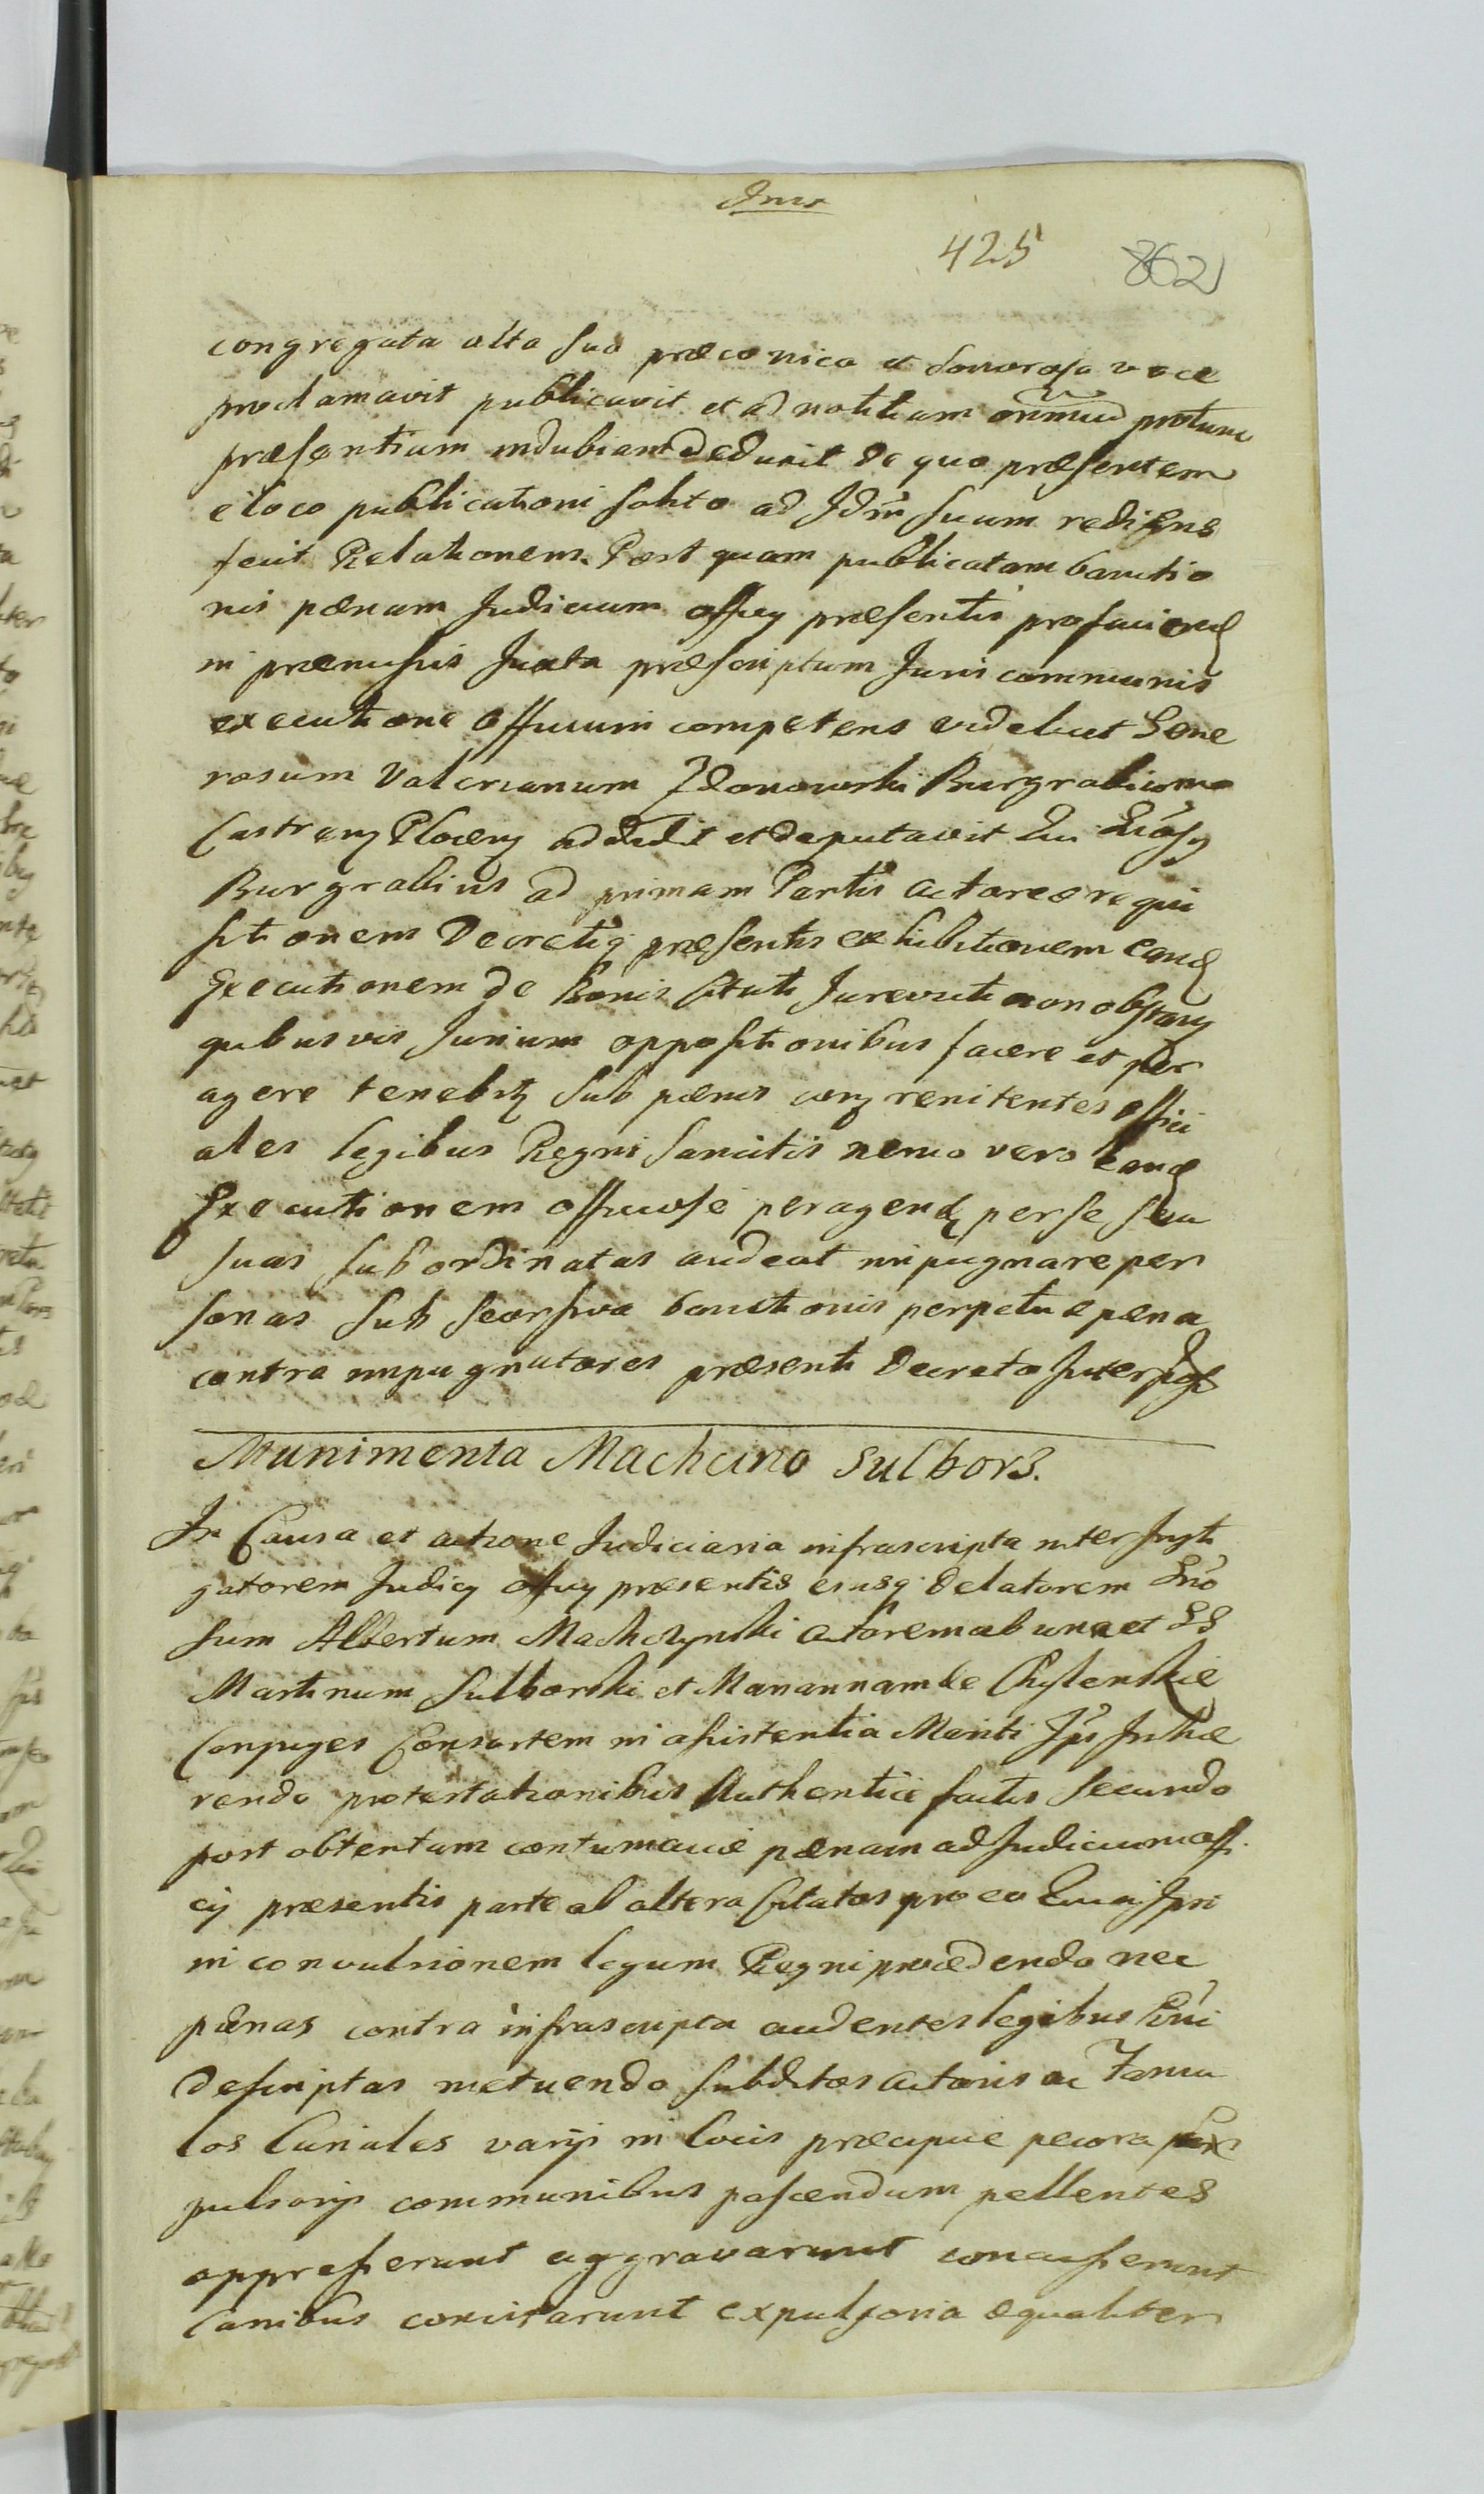 425 862
congregata alta sua præconica et sonorosa voce
proclamavit publicavit et ad notitiam omniu͠ protunc
præsentium indubiam deduxit De quo præsentem
e loco publicationi solito ad Jdm̃ suum rediens
fecit Relationem. Post quam publicatam bannitio
nis pænam Judicium officy præsentis pro faciend
in præmissis Juxta præscriptum Juris communis
executione Officium competens videlicet Gene
rosum Valerianum Zdonowski Burgrabium
Castren Plocen addidit et deputavit Qui Gñosq
Burgrabius ad primam Partis actoreæ requi
sitionem Decretiq præsentis exhibitionem eand
Executionem de Bonis Citati Jurevicti non obstan
quibusvis Jurium oppositionibus facere et per
agere tenebit sub pænis con renitentes offici
ales legibus Regni sancitis nemo vero eand
Executionem officiose peragend per se seu
suas subordinatas audeat impugnare per
sonas sub seorsiva bannitionis perpetuæ pæna
contra impugnatores præsenti Decreto Interpos
Munimenta Machcino Sulbors.
In Causa et actione Judiciaria infrascripta inter Insti
gatorem Judicy officy præsentis eiusq Delatorem Gño
sum Albertum Machczynski actorem ab una et GG
Martinum Sulborski et Mariannam de Chylenskie
Conjuges Consortem in assistentia Mariti Jps Inhæ
rendo protestationibus Authentice factis secundo
post obtentam contumaciæ pænam ad Judicium offi
cij præsentis parte ab altera Citatos pro eo Quia Jpsi
in convulsionem legum Regni procedendo nec
pænas contra infrascripta audentes legibus Rñi
descriptas metuendo subditos actoris ac Famu
los Curiales varijs in locis præcipue pecora
pulsorijs communibus pascendum pellentes
oppresserunt aggravarunt concusserunt
Canibus concitarunt expulsoria æqualiter